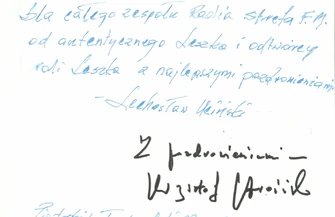 dla całego zespołu Radia Strefa F.M.
od autentycznego Leszka i odtwórcy
roli Leszka z najlepszymi pozdrowieniami
- Lechosław
Z pozdrowieniami -
Krzysztof